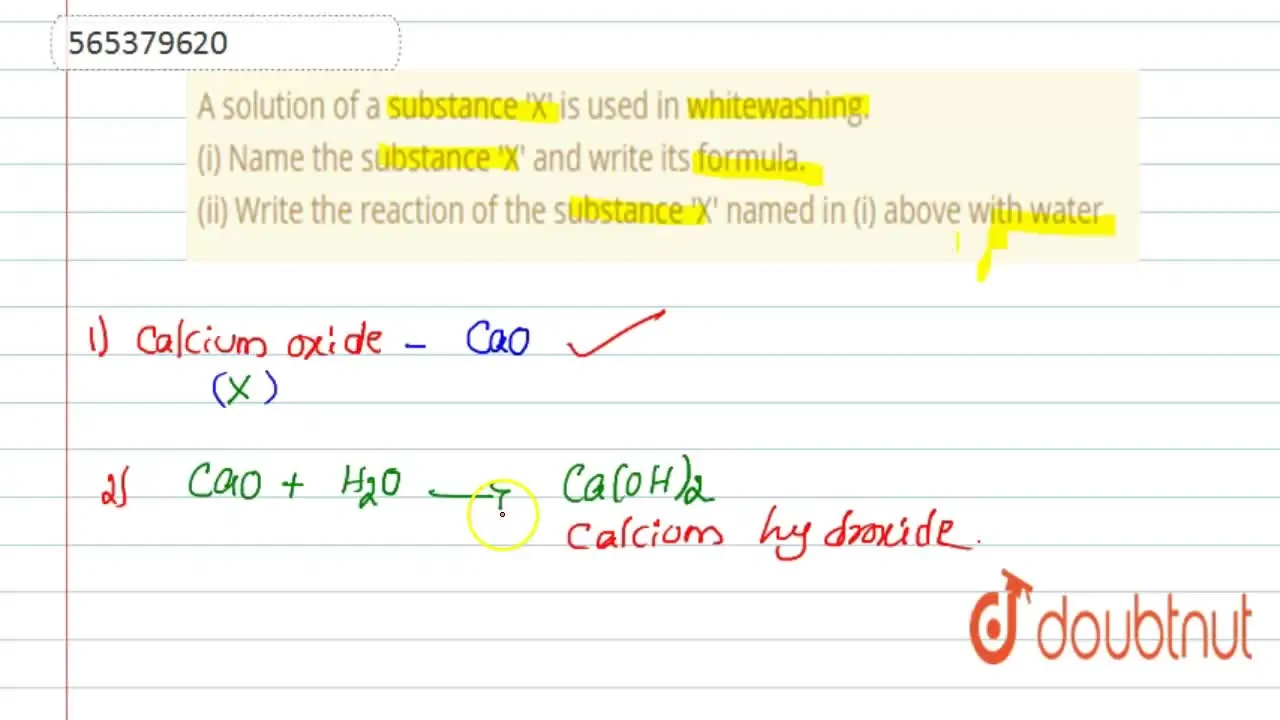 565379620
A solution of a substance 'X' is used in whitewashing.
(i) Name the substance 'X' and write its formula.
(ii) Write the reaction of the substance 'X' named in (i) above with water
1) Calcium oxide - CaO
(X)
2) CaO + H2O → Ca(OH)2
Calcium hydroxide.
doubtnut